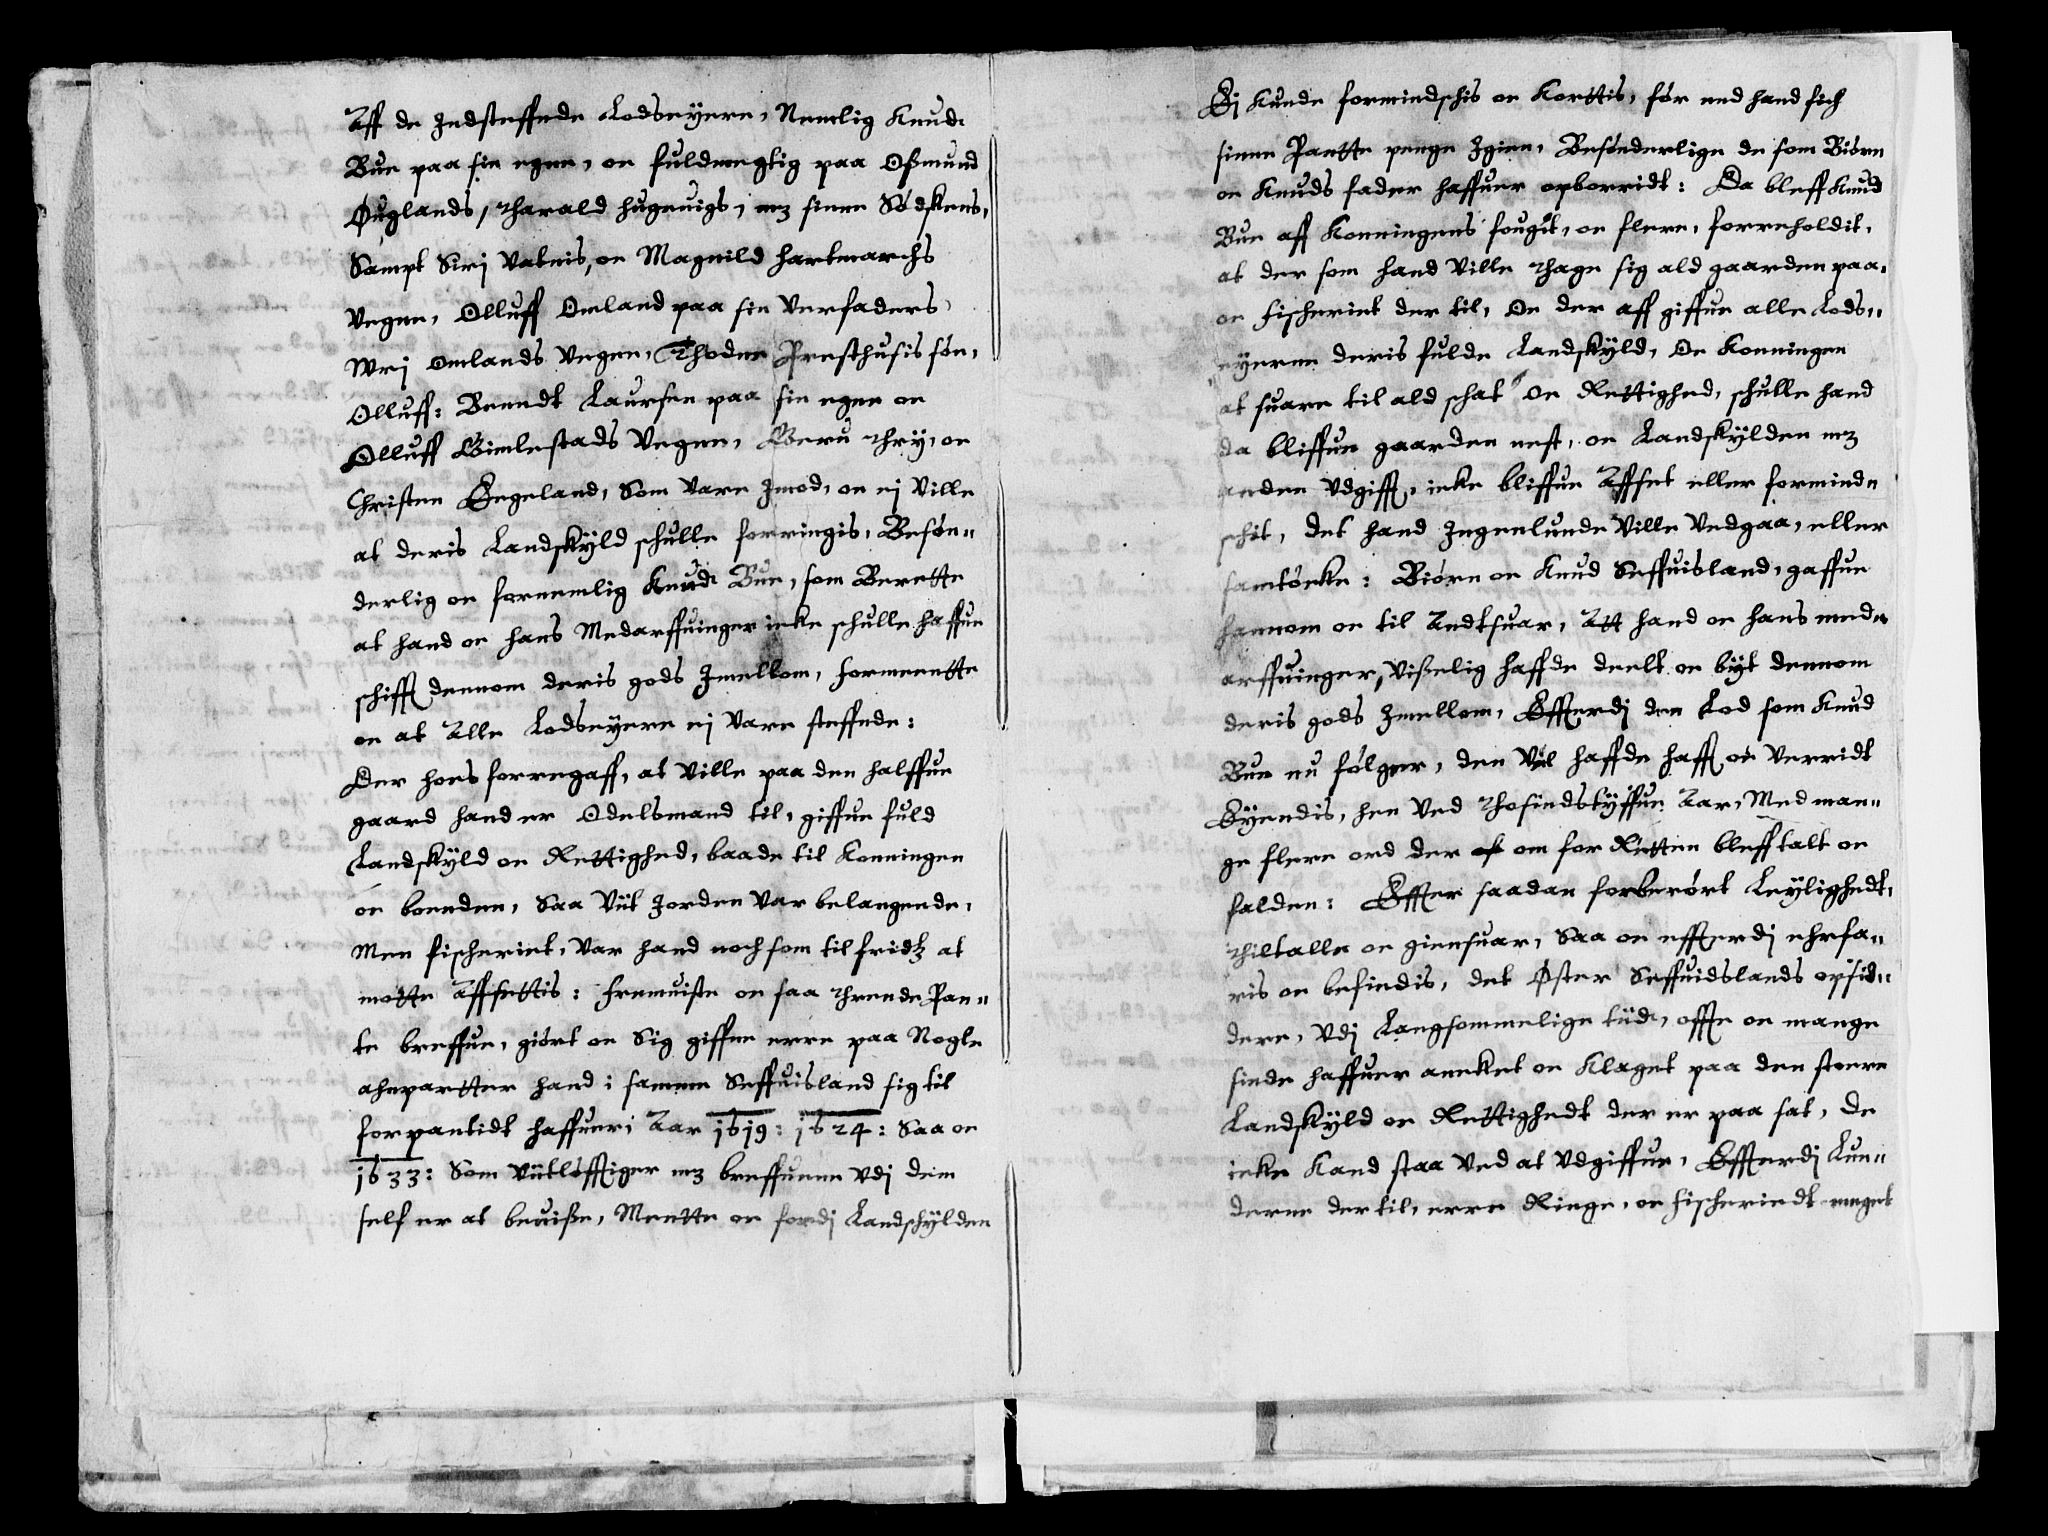 Aff de Indsteffnde Lodseyere, Nemlig Knud
Bue paa sin egen, oc fuldmegtig paa Oßmund
Øuglands, Tharald hugeuigs, mz sinne Södskens,
Sampt Sirj Vatnis, oc Magnild hartmarchs
Vegne, Olluff Omland paa sin Verfaders
Wrj Omlands Vegne, Thoder Presthusis sön,
Olluff: Berndt Laursen paa sin egen oc
Olluff Gimlestads Vegne, Geru Thry, oc
Christen Segeland, Som Vare Imod, oc ej Ville
at deris Landskyld schulle forringis, Besön-
derlig oc fornemlig Knud Bue, som Berette
at hand oc hans Medarffuinger icke schulle haffue
schifft dennom deris gods Imellom, formente
oc at Alle Lodseyere ej Vare steffnde:
Der hoes forregaff, at Ville paa den halffue
gaard hand er Odelsmand til, giffue fuld
Landskyld oc Rettighed, baade til Konningen
oc bonden, Saa Viit Jorden Var belangende,
Men fischeriet, Var hand noch som tilfridtz at
motte Affsettis: fremuiste oc saa Thrende Pan-
te breffue, giört oc Sig giffne erre paa Nogle
ahnpartter hand i samme Seffuisland sig til
forpantidt haffuer i Aar 1619: 1624: Saa oc
1633: Som Viitlöfftiger mz breffuene Vdj dem
self er at beuiße, Mente oc fordj Landschylden
Ej kunde formindschis oc Korttis, för end hand fich
sinne Pantte penge Igien, Besönderlige de som Biörn
oc Knuds fader haffuer opborridt: Da bleff Knud
Bue aff Konningens fougit, oc flere, forreholdit,
at der som hand Ville Thage sig ald gaarden paa,
oc fischeriet der til, Oc der aff giffue alle Lods-
eyerne deris fulde Landskyld, Oc Konningen
at suare til ald schat Oc Rettighed, schulle hand
da bliffue gaarden nest, oc Landskylden mz
anden Vdgifft, icke bliffue Affset eller forminde
schit, det hand Ingenlunde Ville Vedgaa, eller
samtöcke: Biörn oc Knud Seffuisland, gaffue
hannom oc til Andtsuar, Att hand oc hans med-
arffuinger, Vißelig haffde deelt oc byt dennom
deris gods Imellom, Effterdj den Lod som Knud
Bue nu fölger, den Vel haffde hafft oc Verridt
Eyendis, hen Ved Thosindstyffue Aar, Med man-
ge flere ord der om for Retten bleff talt oc
falden: Effter saadan forberört Leylighedt,
Thiltalle oc giensuar, Saa oc effterdj ehrfa-
ris oc befindis, det Øster Seffuidslands opsid-
dere, Vdj Langsommelige tiid, offte oc mange
sinde haffuer ancket oc Klaget paa den store
Landskyld oc Rettighedt der er paa sat, de
icke Kand staa Ved at Vdgiffue, Effterdj Lun-
derne der til, erre Ringe, oc fischeriedt meget